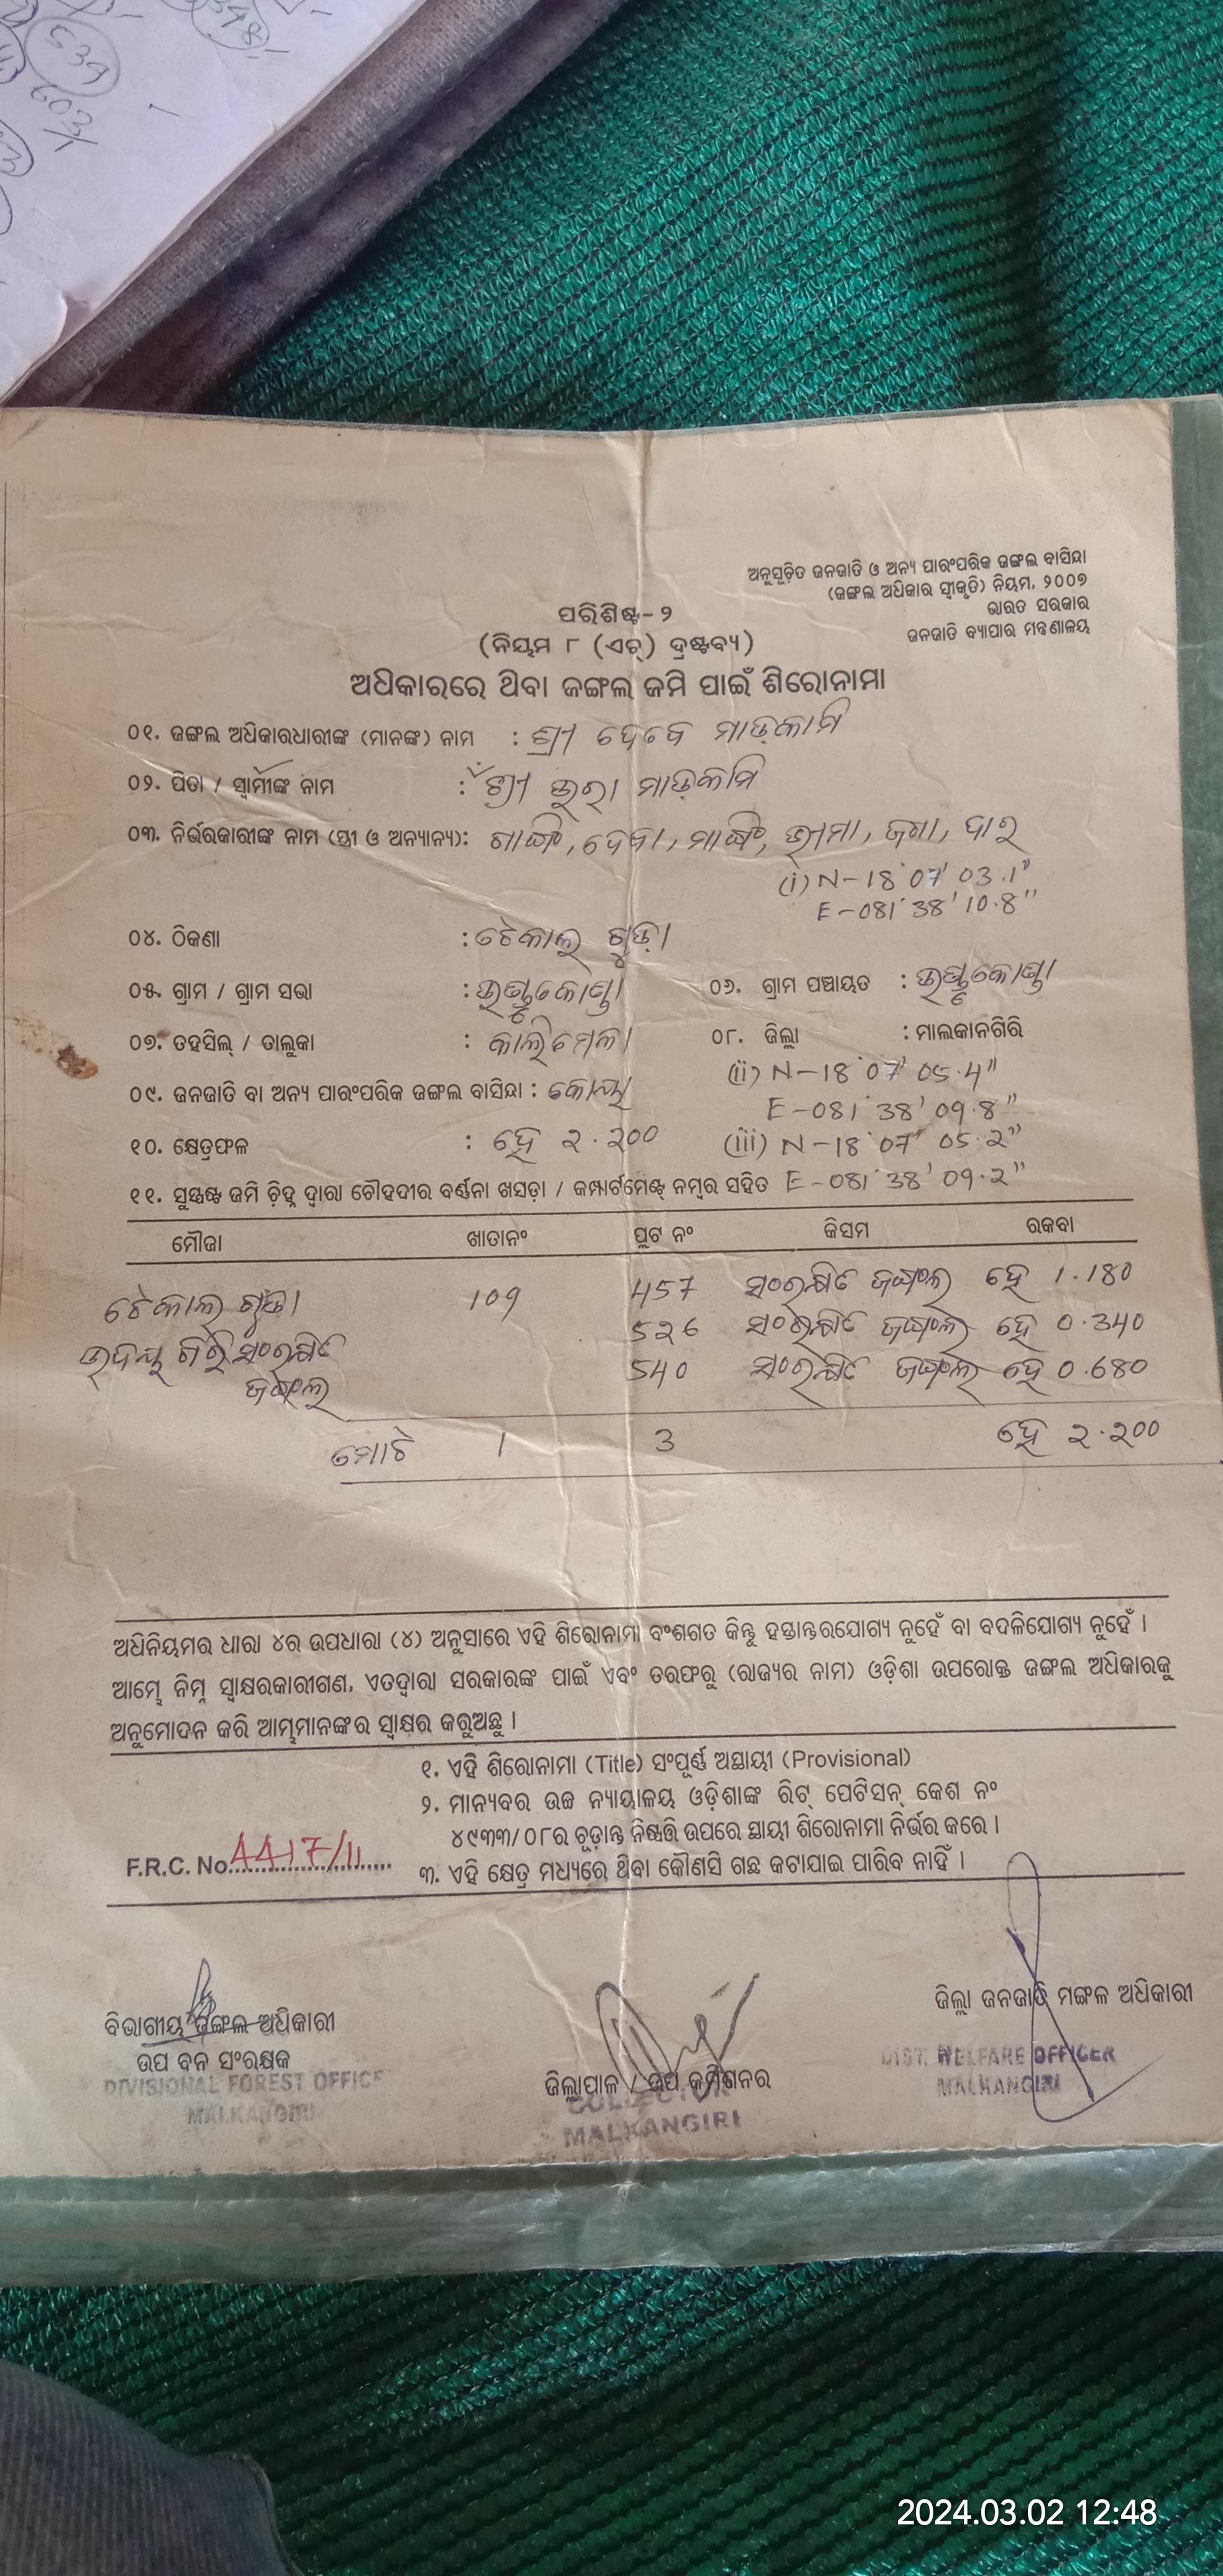 348
639
603/1
ଅନୁସୂଚିତ ଜନଜାତି ଓ ଅନ୍ୟ ପାରଂପରିକ ଜଙ୍ଗଲ ବାସିନ୍ଦା
(ଜଙ୍ଗଲ ଅଧିକାର ସ୍ୱୀକୃତି) ନିୟମ, ୨୦୦୭
ଭାରତ ସରକାର
ଜନଜାତି ବ୍ୟାପାର ମନ୍ତ୍ରଣାଳୟ
ପରିଶିଷ୍ଟ-୨
(ନିୟମ ୮ (ଏଚ୍) ଦ୍ରଷ୍ଟବ୍ୟ)
ଅଧିକାରରେ ଥିବା ଜଙ୍ଗଲ ଜମି ପାଇଁ ଶିରୋନାମା
୦୧. ଜଙ୍ଗଲ ଅଧିକାରଧାରୀଙ୍କ (ମାନଙ୍କ) ନାମ : ଶ୍ରୀ ଦେବେ ମାଡ଼କାମି
୦୨. ପିତା / ସ୍ୱାମୀଙ୍କ ନାମ : ଶ୍ରୀ ଭୁରା ମାଡ଼କାମି
୦୩. ନିର୍ଭରକାରୀଙ୍କ ନାମ (ସ୍ତ୍ରୀ ଓ ଅନ୍ୟାନ୍ୟ): ଗାଙ୍ଗି, ଦେବା, ମାଙ୍ଗି, ଭୀମା, ଜଗା,
(i) N-18°07' 03.1"
E-081°38' 10.8"
୦୪. ଠିକଣା : ଟେକାଲ ଗୁଡ଼ା
୦୫. ଗ୍ରାମ / ଗ୍ରାମ ସଭା : ୦୬. ଗ୍ରାମ ପଞ୍ଚାୟତ :
୦୭. ତହସିଲ୍ / ତାଲୁକା : କାଲିମେଳା ୦୮. ଜିଲ୍ଲା : ମାଲକାନଗିରି
(ii) N-18°07' 05.4"
୦୯. ଜନଜାତି ବା ଅନ୍ୟ ପାରଂପରିକ ଜଙ୍ଗଲ ବାସିନ୍ଦା : କୋୟା E-081°38' 09.8"
୧୦. କ୍ଷେତ୍ରଫଳ : ହେ ୨.୨୦୦ (iii) N-18°07' 05.2"
୧୧. ସୁସ୍ପଷ୍ଟ ଜମି ଚିହ୍ନ ଦ୍ୱାରା ଚୌହଦୀର ବର୍ଣ୍ଣନା ଖସଡ଼ା / କମ୍ପାର୍ଟମେଣ୍ଟ୍ ନମ୍ବର ସହିତ E-081°38' 09.2"
ମୌଜା ଖାତାନଂ ପ୍ଲଟ ନଂ କିସମ ରକବା
ଟେକାଲ ଗୁଡା 109 457 ସଂରକ୍ଷିତ ଜଙ୍ଗଲ ହେ 1.180
ଉଦୟ ଗିରି ସଂରକ୍ଷିତ 526 ସଂରକ୍ଷିତ ଜଙ୍ଗଲ ହେ 0.340
ଜଙ୍ଗଲ 540 ସଂରକ୍ଷିତ ଜଙ୍ଗଲ ହେ 0.680
ମୋଟ 1 3 ହେ ୨.୨୦୦
ଅଧିନିୟମର ଧାରା ୪ର ଉପଧାରା (୪) ଅନୁସାରେ ଏହି ଶିରୋନାମା ବଂଶଗତ କିନ୍ତୁ ହସ୍ତାନ୍ତରଯୋଗ୍ୟ ନୁହେଁ ବା ବଦଳିଯୋଗ୍ୟ ନୁହେଁ ।
ଆମ୍ଭେ ନିମ୍ନ ସ୍ୱାକ୍ଷରକାରୀଗଣ, ଏତଦ୍ୱାରା ସରକାରଙ୍କ ପାଇଁ ଏବଂ ତରଫରୁ (ରାଜ୍ୟର ନାମ) ଓଡ଼ିଶା ଉପରୋକ୍ତ ଜଙ୍ଗଲ ଅଧିକାରକୁ
ଅନୁମୋଦନ କରି ଆମ୍ଭମାନଙ୍କର ସ୍ୱାକ୍ଷର କରୁଅଛୁ ।
୧. ଏହି ଶିରୋନାମା (Title) ସଂପୂର୍ଣ୍ଣ ଅସ୍ଥାୟୀ (Provisional)
୨. ମାନ୍ୟବର ଉଚ୍ଚ ନ୍ୟାୟାଳୟ ଓଡ଼ିଶାଙ୍କ ରିଟ୍ ପେଟିସନ୍ କେଶ ନଂ
୪୯୩୩/୦୮ର ଚୂଡ଼ାନ୍ତ ନିଷ୍ପତ୍ତି ଉପରେ ସ୍ଥାୟୀ ଶିରୋନାମା ନିର୍ଭର କରେ ।
F.R.C. No. 4417/11
୩. ଏହି କ୍ଷେତ୍ର ମଧ୍ୟରେ ଥିବା କୌଣସି ଗଛ କଟାଯାଇ ପାରିବ ନାହିଁ ।
ବିଭାଗୀୟ ଜଙ୍ଗଲ ଅଧିକାରୀ
ଉପ ବନ ସଂରକ୍ଷକ
DIVISIONAL FOREST OFFICE
MALKANGIRI
ଜିଲ୍ଲାପାଳ / ଉପ କମିଶନର
COLLECTOR
MALKANGIRI
ଜିଲ୍ଲା ଜନଜାତି ମଙ୍ଗଳ ଅଧିକାରୀ
DIST. WELFARE OFFICER
MALKANGIRI
2024.03.02 12:48